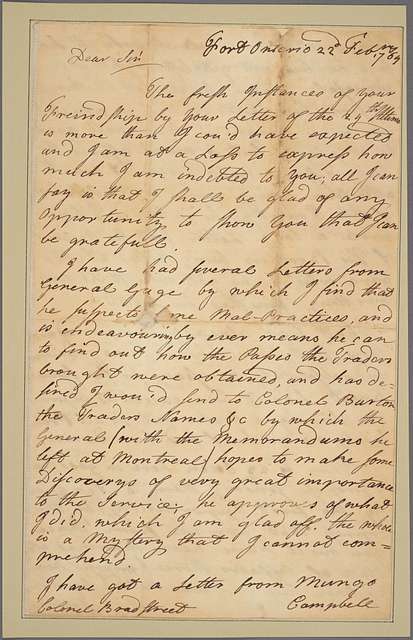 Fort Ontario 22d Febry 1764
Dear Sir
The fresh Instances of your
Freindship by your Letter of the 29th Ultimo
is more than I cou'd have expected
and I am at a Loss to express how
much I am indebted to you, all I can
say is that I shall be glad of any
Opportunity to show you that I can
be gratefull.
I have had several Letters from
General Gage by which I find that
he suspects some Mal-Practices, and
is endeavouring by ever means he can
to find out how the Passes the Traders
brought were obtained, and has de=
sired I wou'd send to Colonel Burton
the Traders Names &c by which the
General (with the Memorandums he
left at Montreal) hopes to make some
Discoverys of very great importance
to the Service; he approves of what
I did, which I am glad off. the whole
is a Mystery that I cannot com=
prehend.
I have got a Letter from Mungo
Colonel Bradstreet Campbell